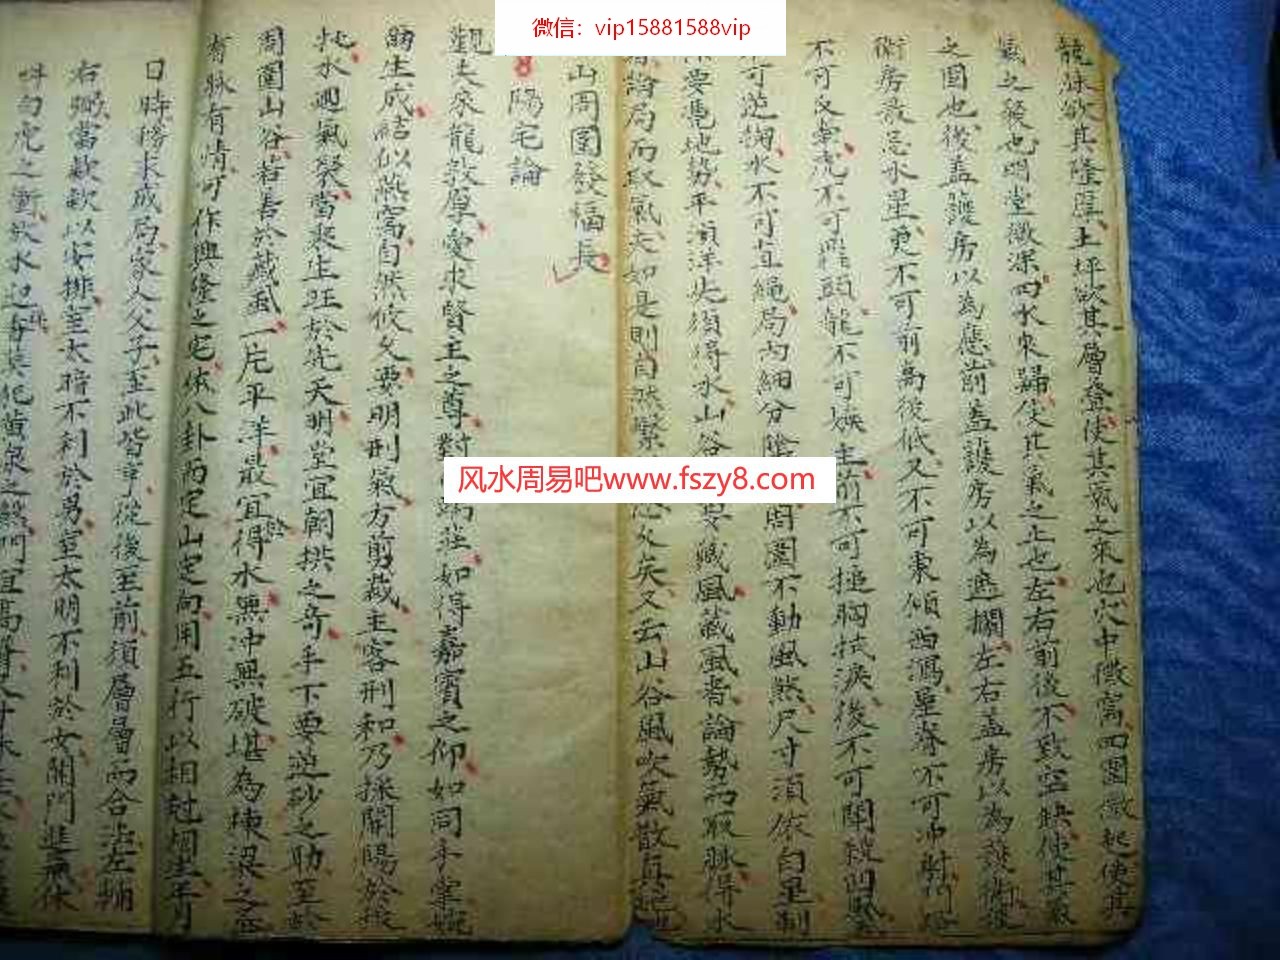 微信：vip15881588vip
龍脉欲其隆厚土坪欲其層登使其氣之來也穴中微窩四圍微起使其
氣之發也明堂微深四水來歸使其氣之止也左右前後不致空缺使其氣
之固也後蓋護房以為應前蓋護房以為遮攔左右蓋房以為護衛護
衛房最忌水星更不可前高後低又不可東傾西瀉星脊不可冲射門路
不可反東虎不可昂頭龍不可嫉主前不可搥胸拭淚後不可開鏡門緊
可逆掬水不可直繩局內細分陰 周圍不動風然尺寸須依白星制
要憑地勢平須洋先須得水山谷 要藏風藏風者論勢而取脉得水
論局而取氣夫如是則自然緊 悠久矣又云山谷風吹氣散真
山周圍發福長
8 陽宅論
觀夫來龍敦厚愛求賢主之尊對 端莊如得嘉賓之仰如同手掌
生成結似燕窩自然攸久要明刑氣方剪裁主客刑和乃採關陽於
水廻氣聚當來生旺於先天明堂宜朝拱之奇手下要逆砂之助至於
周圍山谷皆喜於藏風一片平洋最宜得水無冲無破堪為棟梁之
有脉有情可作興隆之宅依八卦而定山定向用五行以相尅相生年月
日時榜求成局家人父子至此皆亨從後至前須層層而合法左輔
右 當款款以安排室太暗不利於男室太明不利於女開門進氣休
虎之 放水迎 犯黃泉之 門宜高
风水周易吧www.fszy8.com